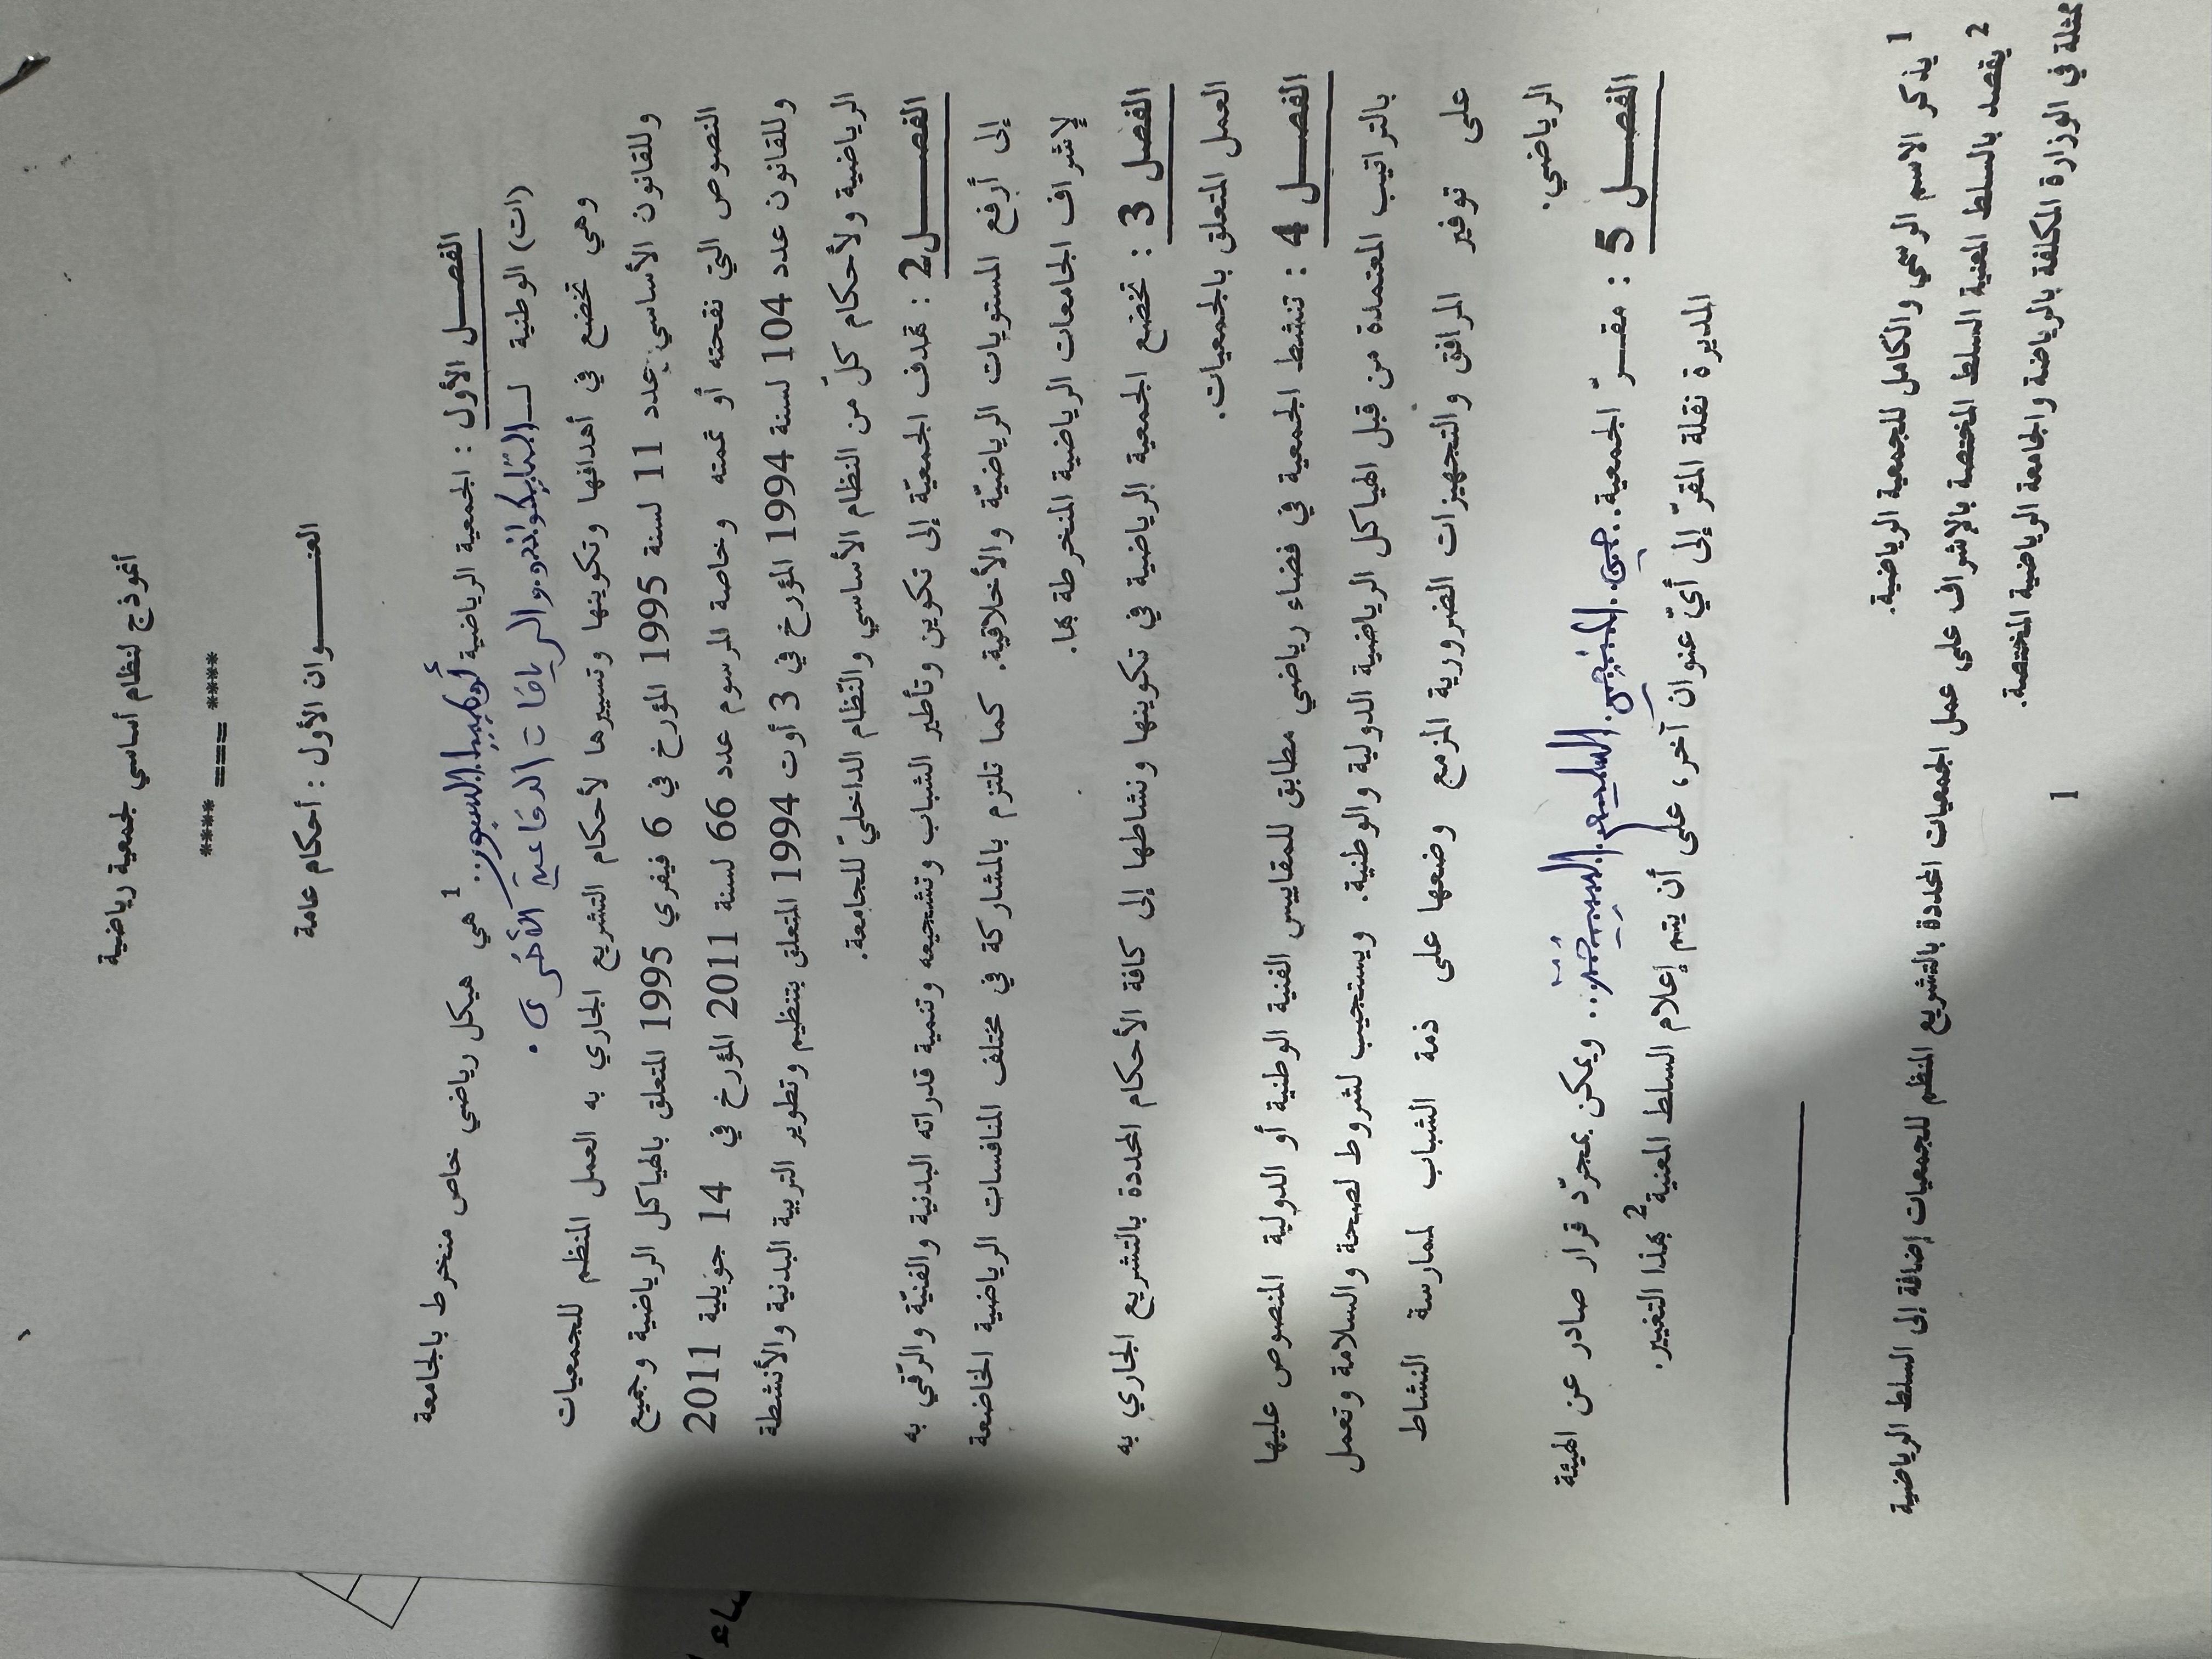 أنموذج لنظام أساسي لجمعية رياضية
**** === ****
العنـــــــوان الأول : أحكام عامة
الفصـــل الأول : الجمعية الرياضية أولمبيا سبور 1 هي هيكل رياضي خاص منخرط بالجامعة
(ات) الوطنية لـ التايكواندو والرياضات الدفاعية الأخرى .
وهي تخضع في أهدافها وتكوينها وتسييرها لأحكام التشريع الجاري به العمل المنظم للجمعيات
وللقانون الأساسي عدد 11 لسنة 1995 المؤرخ في 6 فيفري 1995 المتعلق بالهياكل الرياضية وجميع
النصوص التي نقحته أو تممته وخاصة المرسوم عدد 66 لسنة 2011 المؤرخ في 14 جويلية 2011
وللقانون عدد 104 لسنة 1994 المؤرخ في 3 أوت 1994 المتعلق بتنظيم وتطوير التربية البدنية والأنشطة
الرياضية ولأحكام كلّ من النظام الأساسي والنّظام الداخليّ للجامعة.
الفصــــل2 : تهدف الجمعيّة إلى تكوين وتأطير الشباب وتشجيعه وتنمية قدراته البدنية والفنيّة والرّقي به
إلى أرفع المستويات الرياضيّة والأخلاقية. كما تلتزم بالمشاركة في مختلف المنافسات الرياضية الخاضعة
لإشراف الجامعات الرياضية المنخرطة بها.
الفصل 3 : تخضع الجمعية الرياضية في تكوينها ونشاطها إلى كافة الأحكام المحددة بالتشريع الجاري به
العمل المتعلق بالجمعيات.
الفصـــل 4 : تنشط الجمعية في فضاء رياضي مطابق للمقاييس الفنية الوطنية أو الدولية المنصوص عليها
بالتراتيب المعتمدة من قبل الهياكل الرياضية الدولية والوطنية. ويستجيب لشروط لصحة والسلامة وتعمل
على توفير المرافق والتجهيزات الضرورية المزمع وضعها على ذمة الشباب لممارسة النشاط
الرياضي.
الفصـــل 5 : مقـــرّ الجمعية.. حي .. ويمكن بمجرّد قرار صادر عن الهيئة
المديرة نقلة المقرّ إلى أيّ عنوان آخر، على أن يتم إعلام السلط المعنية 2 بهذا التغيير.
1 يذكر الاسم الرسمي والكامل للجمعية الرياضية.
2 يقصد بالسلط المعنية السلط المختصة بالإشراف على عمل الجمعيات المحددة بالتشريع المنظم للجمعيات إضافة إلى السلط الرياضية
ممثلة في الوزارة المكلفة بالرياضة والجامعة الرياضية المختصة.
1